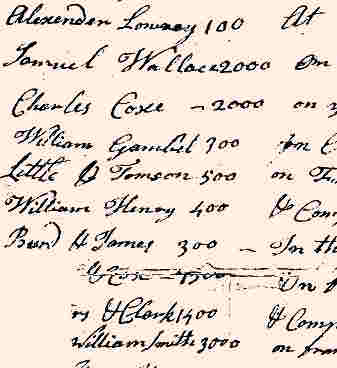 Alexender Lowrey 100 At
Samuel Wallace 2000 on
Charles Coxe - 2000 on
William Gambel 300 on
Little & Tomson 500 on
William Henry 400 & Comp
Burd & James 300 - In th
& Cox
rs & Clark 1400 & Comp
William Smith 3000 on